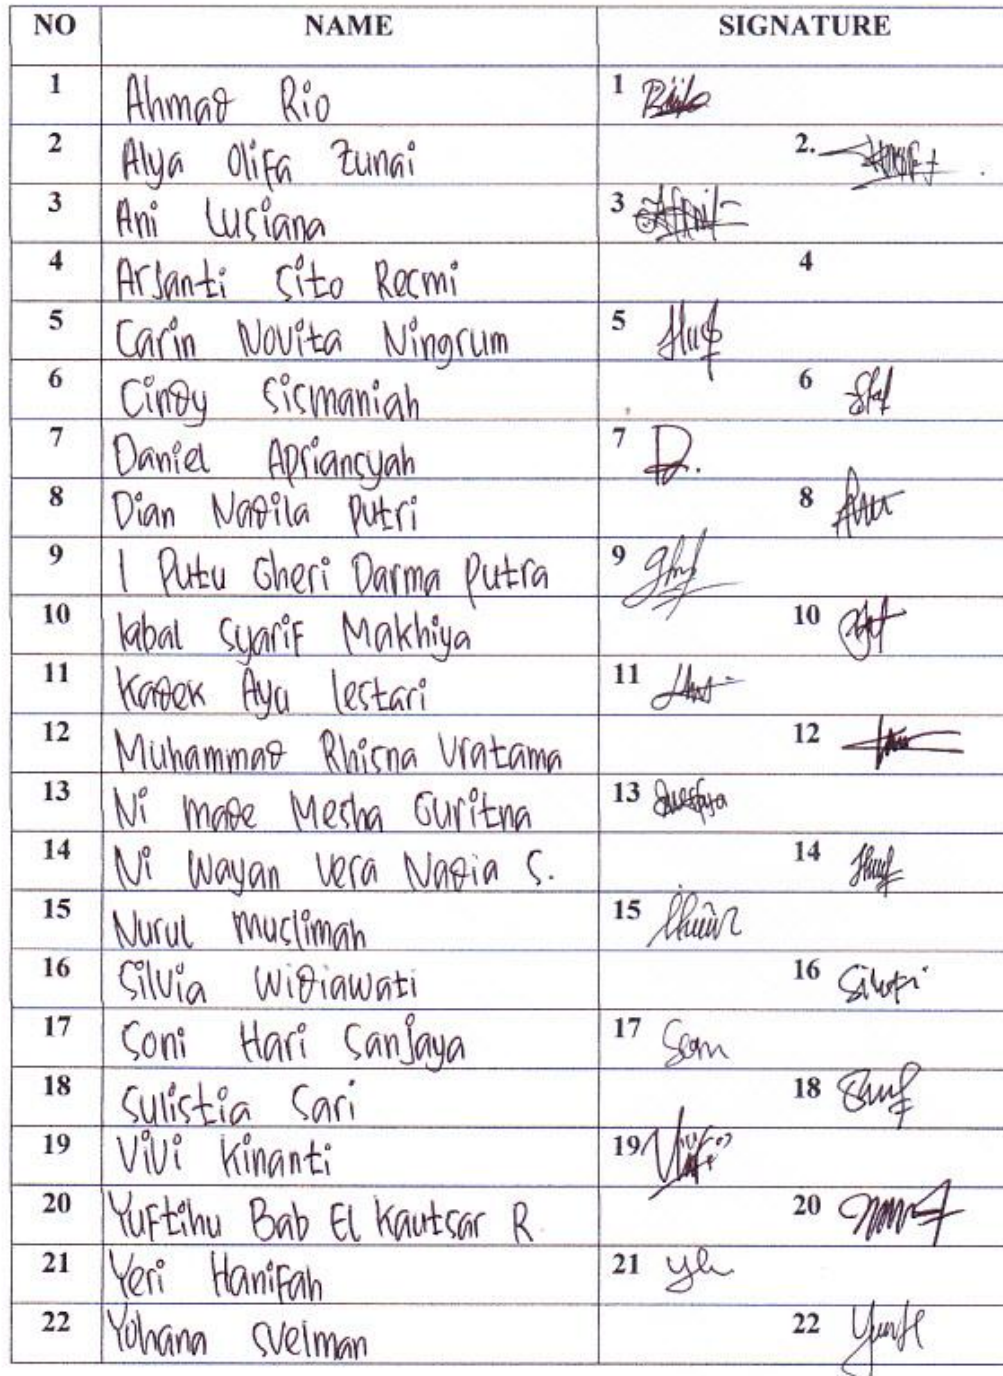 NO NAME SIGNATURE
1 Ahmad Rio 1
2 Alya Olifa Zunai 2.
3 Ani Lusiana 3
4 Arsanti Sito Resmi 4
5 Carin Novita Ningrum 5
6 Cindy Sismaniah 6
7 Daniel Apriansyah 7 D.
8 Dian Nadila Putri 8
9 I Putu Gheri Darma Putra 9
10 Iqbal Syarif Makhiya 10
11 Kadek Ayu Lestari 11
12 Muhammad Rhisna Vratama 12
13 Ni made Mesha Guritna 13
14 Ni Wayan Vera Nadia S. 14
15 Nurul Muslimah 15
16 Silvia Widiawati 16
17 Soni Hari Sanjaya 17
18 Sulistia Sari 18
19 Vivi Kinanti 19
20 Yuftihu Bab El Kautsar R 20
21 Yeri Hanifah 21
22 Yohana Svelman 22